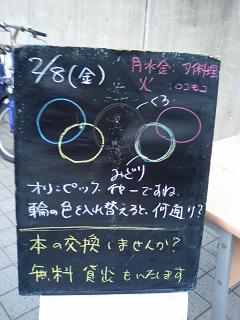 2/8(金)
月水金:タイ料理
火:ロコモコ
くろ
みどり
オリンピック やーですね
輪の色を入れ替えると、何通り?
本の交換しませんか?
無料 貸出もいたします